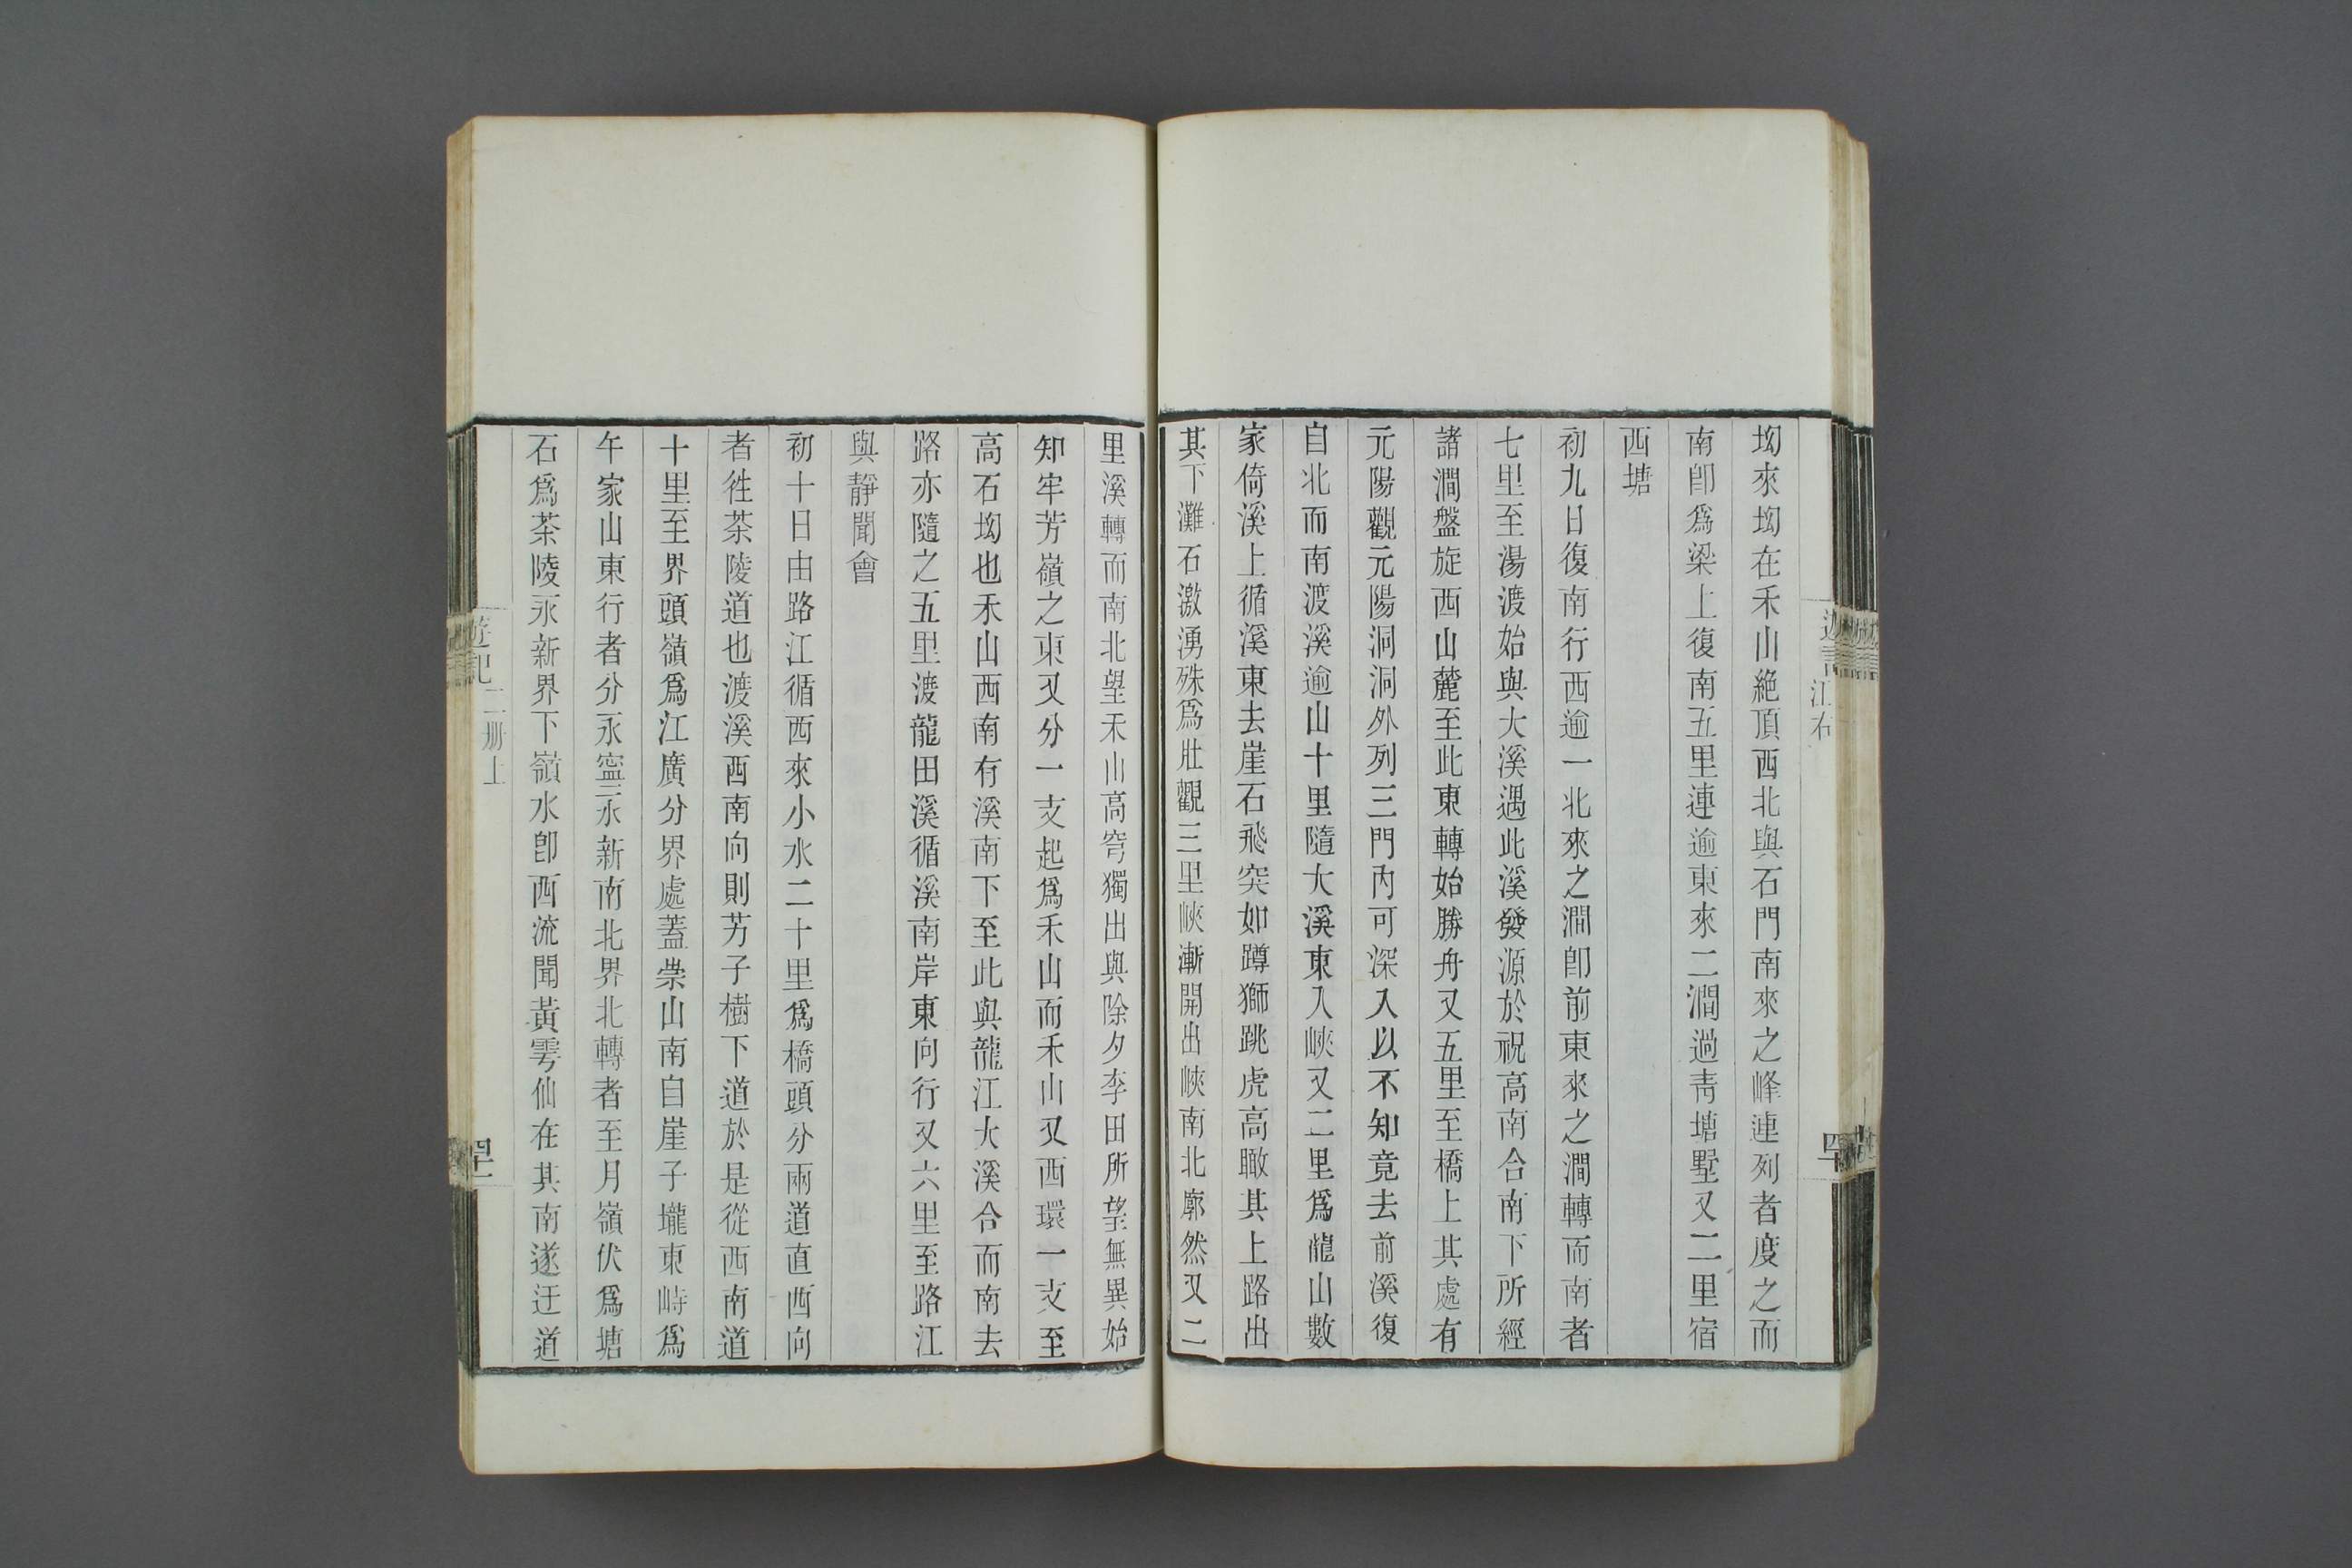 坳來坳在禾山絶頂西北與石門南來之峰連列者度之而
南卽爲梁上復南五里連逾東來二澗過靑塘墅又二里宿
西塘
初九日復南行西逾一北來之澗卽前東來之澗轉而南者
七里至湯渡始與大溪遇此溪發源於祝高南合南下所經
諸澗盤旋西山麓至此東轉始勝舟又五里至橋上其處有
元陽觀元陽洞洞外列三門內可深入以不知竟去前溪復
自北而南渡溪逾山十里隨大溪東入峽又二里爲龍山數
家倚溪上循溪東去崖石飛突如蹲獅跳虎高瞰其上路出
其下灘石激湧殊爲壯觀三里峽漸開出峽南北廓然又二
里溪轉而南北望禾山高穹獨出與除夕李田所望無異始
知牢芳嶺之東又分一支起爲禾山而禾山又西環一支至
高石坳也禾山西南有溪南下至此與龍江大溪合而南去
路亦隨之五里渡龍田溪循溪南岸東向行又六里至路江
與靜聞會
初十日由路江循西來小水二十里爲橋頭分兩道直西向
者徃茶陵道也渡溪西南向則芳子樹下道於是從西南道
十里至界頭嶺爲江廣分界處蓋崇山南自崖子壠東峙爲
午家山東行者分永寍永新南北界北轉者至月嶺伏爲塘
石爲茶陵永新界下嶺水卽西流聞黃雩仙在其南遂迂道
遊記
江右
遊記
二册上